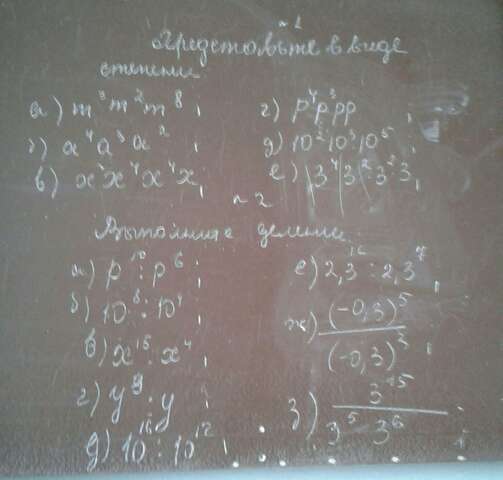 № 1
Представьте в виде
степени
а) m³m²m⁸; г) p⁴p³pp,
б) a⁴a³a²; д) 10²10³10⁵;
в) x x⁴x⁴x; е) 3⁴3²3²3;
№ 2
Выполните деление
а) p¹⁰:p⁶; е) 2,3¹⁶:2,3⁷,
б) 10⁸:10⁴; ж) (-0,3)⁵/(-0,3)³;
в) x¹⁵:x⁴;
г) y⁹:y; з) 3¹⁵/3⁵ 3⁶.
д) 10¹⁶:10¹²;